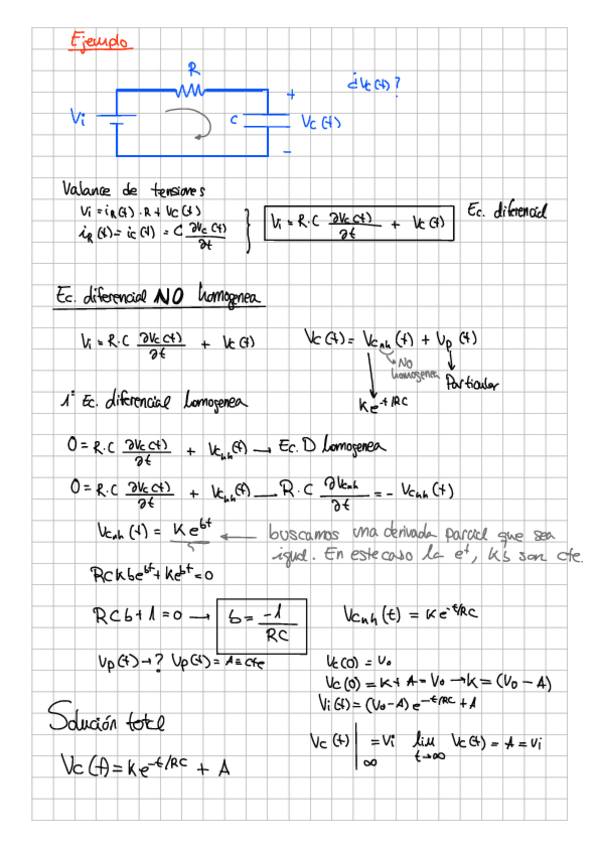 Ejemplo
R
¿Vc(t)?
+
Vi
C
Vc(t)
-
Valance de tensiones
Vi = iR(t) · R + Vc(t)
iR(t) = ic(t) = C ∂Vc(t)/∂t
Vi = R·C ∂Vc(t)/∂t + Vc(t)
Ec. diferencial
Ec. diferencial NO homogenea
Vi = R·C ∂Vc(t)/∂t + Vc(t)
Vc(t) = Vcnh(t) + Vp(t)
No homogenea
Particular
Ke^-t/RC
1º Ec. diferencial homogenea
0 = R·C ∂Vc(t)/∂t + Vcnh(t) → Ec. D homogenea
0 = R·C ∂Vc(t)/∂t + Vcnh(t) → R·C ∂Vcnh/∂t = - Vcnh(t)
Vcnh(t) = Ke^bt ← buscamos una derivada parcial que sea
igual. En este caso la e^t, Kb son cte.
RCKbe^bt + Ke^bt = 0
RCb + 1 = 0 → b = -1/RC
Vcnh(t) = Ke^-t/RC
Vp(t) → ? Vp(t) = A = cte
Vc(0) = Vo
Vc(0) = K + A = Vo → K = (Vo - A)
Vi(t) = (Vo - A) e^-t/RC + A
Solución total
Vc(t) | ∞ = Vi lim t→∞ Vc(t) = A = Vi
Vc(t) = Ke^-t/RC + A